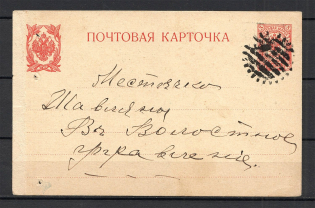 ПОЧТОВАЯ КАРТОЧКА
Местечко
Шавляны
Въ Волостное
Управленіе.